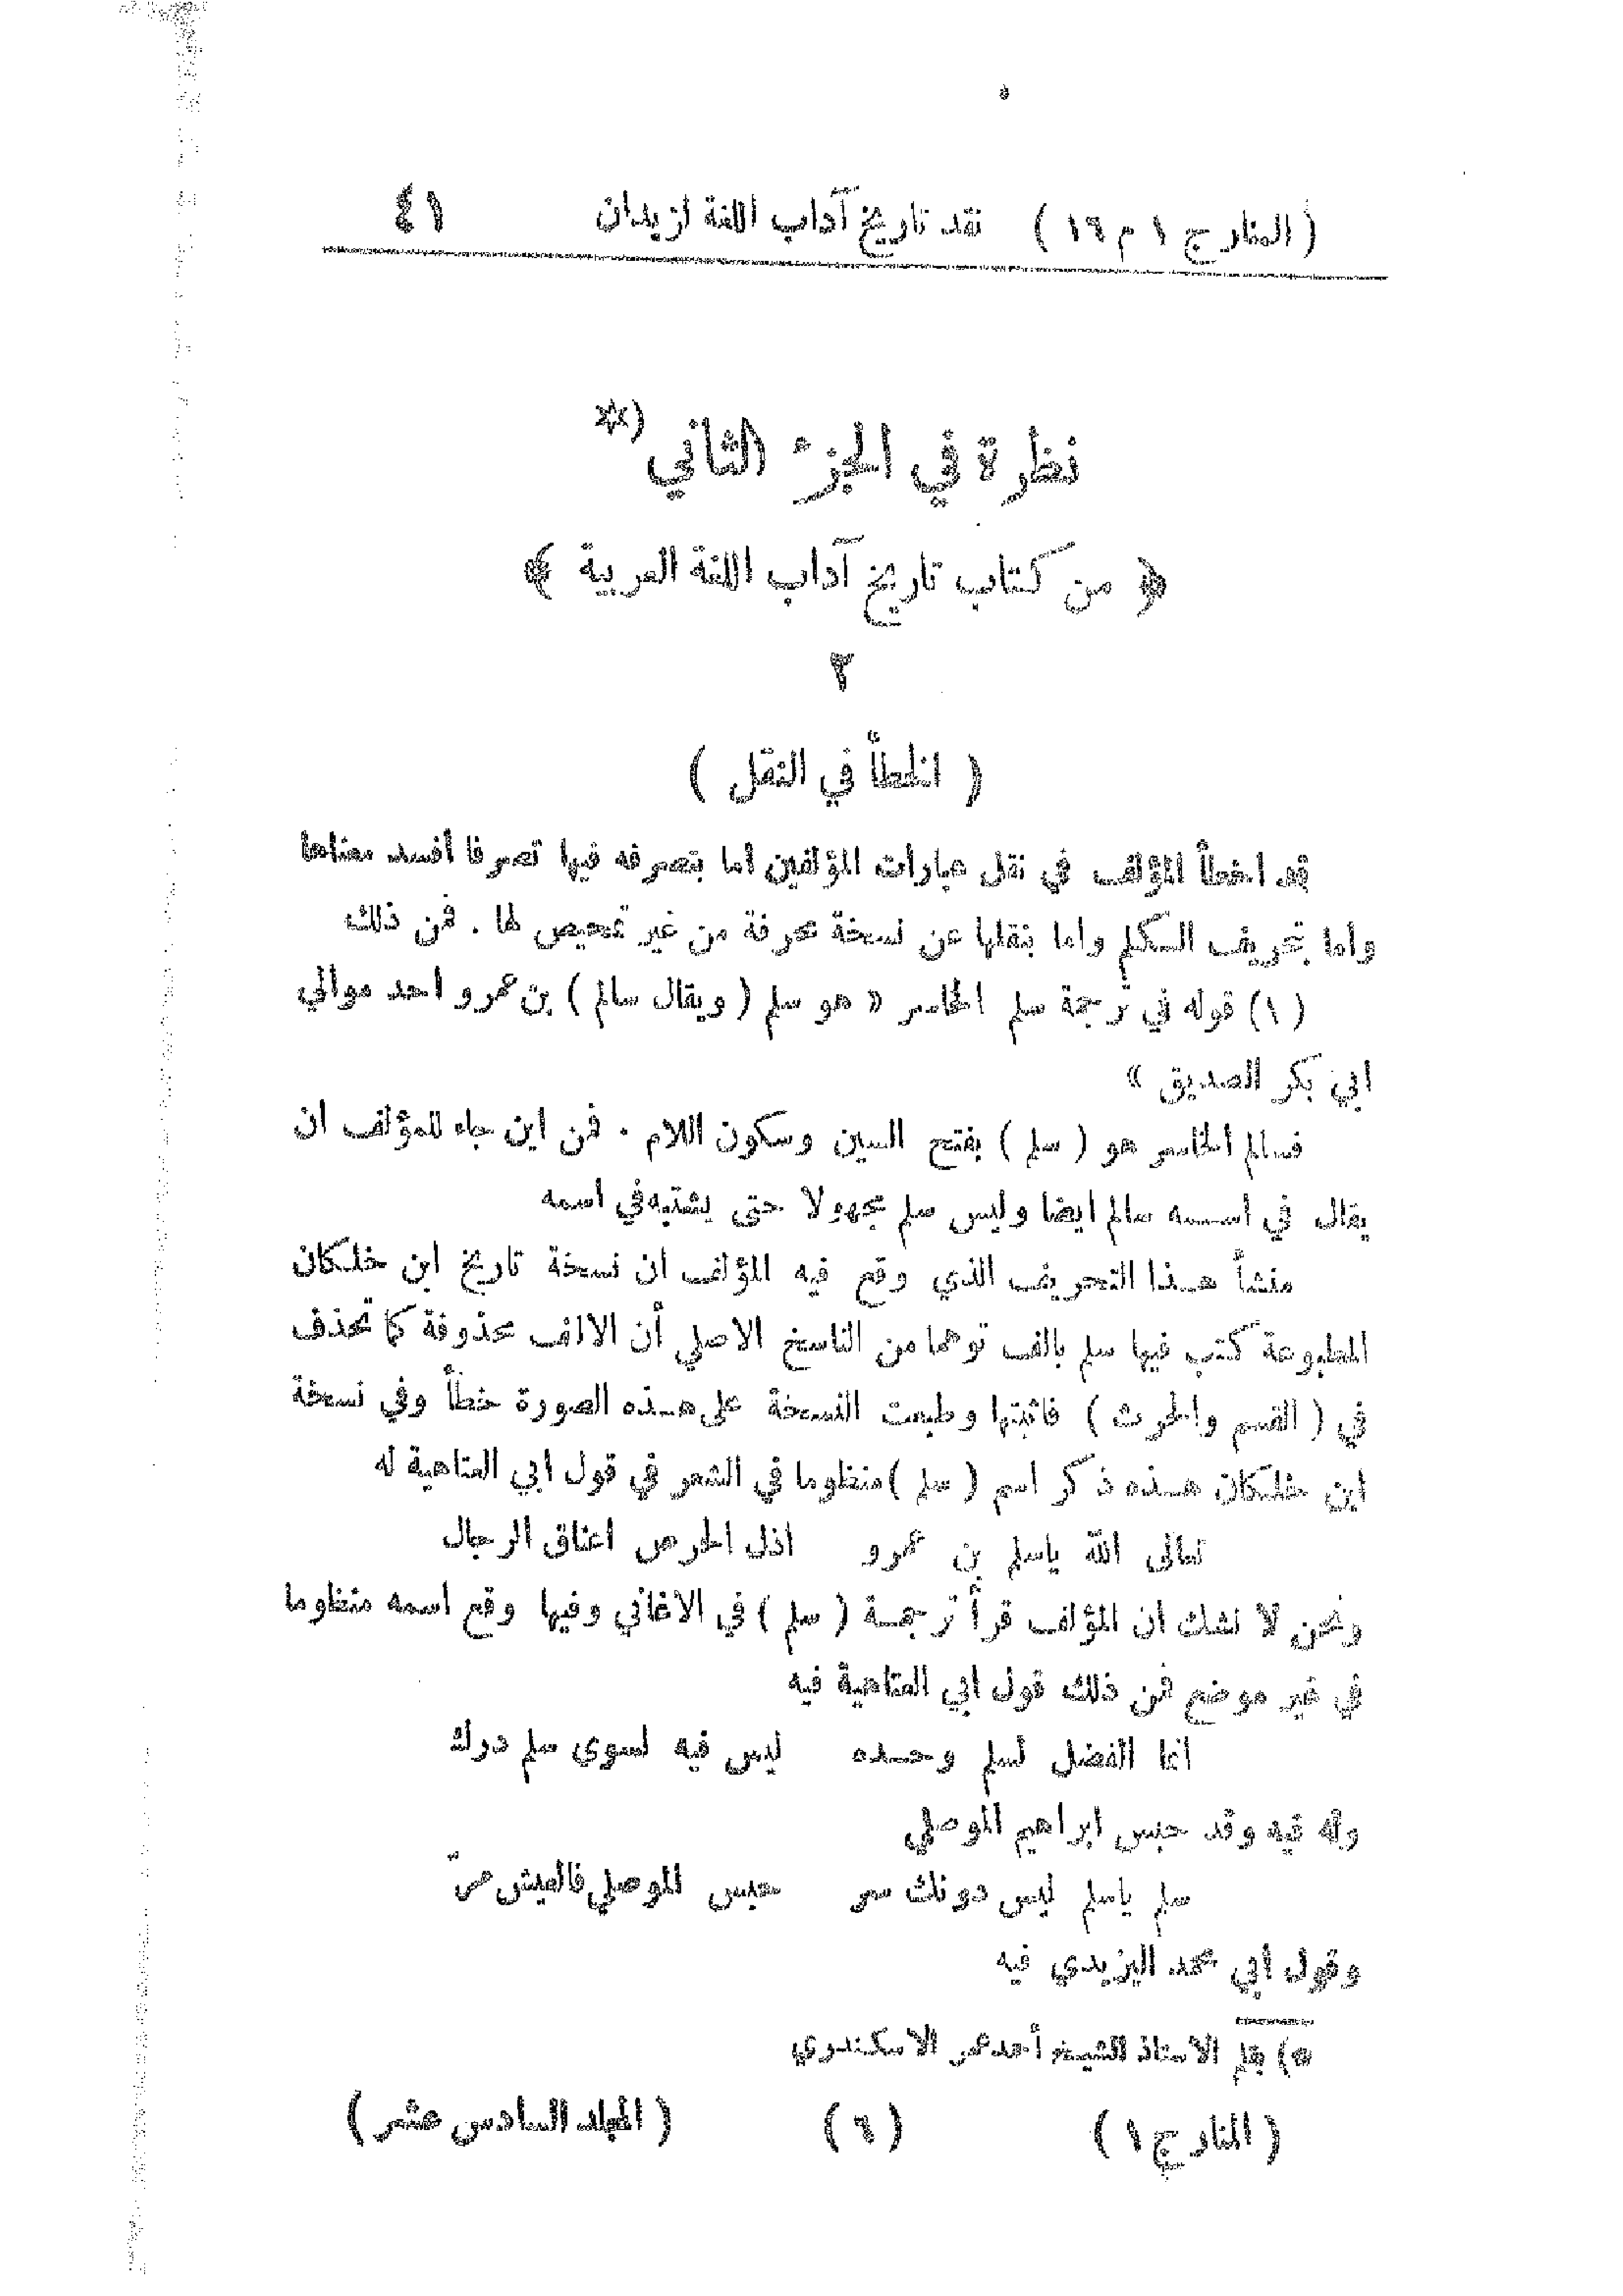 ( المنار ج ١ م ١٦ ) نقد تاريخ آداب اللغة لزيدان ٤١
نظرة في الجزء الثاني *)
﴿ من كتاب تاريخ آداب اللغة العربية ﴾
٣
( الخطأ في النقل )
قد اخطأ المؤلف في نقل عبارات المؤلفين اما بتصرفه فيها تصرفا أفسد معناها
واما بتحريف الكلم واما بنقلها عن نسخة محرفة من غير تمحيص لها . فمن ذلك
(١) قوله في ترجمة سلم الخاسر « هو سلم ( ويقال سالم ) بن عمرو احد موالي
ابي بكر الصديق »
فسالم الخاسر هو ( سلم ) بفتح السين وسكون اللام . فمن اين جاء للمؤلف ان
يقال في اسمه سالم ايضا وليس سلم مجهولا حتى يشتبه في اسمه
منشأ هذا التحريف الذي وقع فيه المؤلف ان نسخة تاريخ ابن خلكان
المطبوعة كتب فيها سلم بالف توهما من الناسخ الاصلي أن الالف محذوفة كما تحذف
في ( القسم والحرث ) فاثبتها وطبعت النسخة على هذه الصورة خطأ وفي نسخة
ابن خلكان هذه ذكر اسم ( سلم ) منظوما في الشعر في قول ابي العتاهية له
تعالى الله ياسلم بن عمرو اذل الحرص اعناق الرجال
ونحن لا نشك ان المؤلف قرأ ترجمة ( سلم ) في الاغاني وفيها وقع اسمه منظوما
في غير موضع فمن ذلك قول ابي العتاهية فيه
انما الفضل لسلم وحده ليس فيه لسوى سلم درك
وله فيه وقد حبس ابراهيم الموصلي
سلم ياسلم ليس دونك سر حبس الموصلي فالعيش مرّ
وقول أبي محمد اليزيدي فيه
*) بقلم الاستاذ الشيخ أحمد عمر الاسكندري
( المنار ج ١ ) ( ٦ ) ( المجلد السادس عشر )